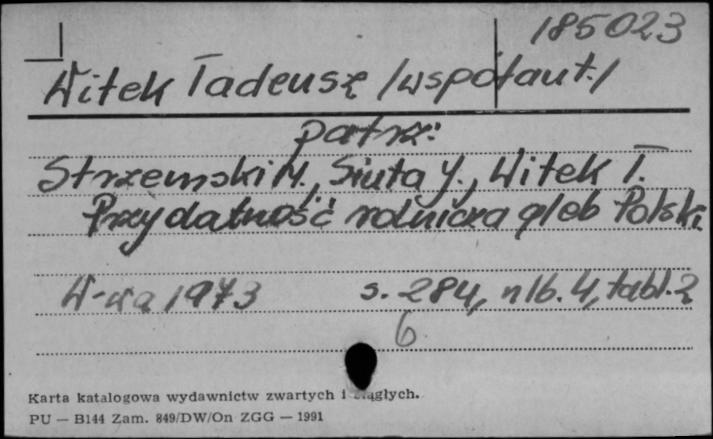 185023
Witek Tadeusz /współaut./
patrz:
Strzemski M., Siuta J., Witek T.
Przydatność rolnicza gleb Polski
W-wa 1973 s. 284, nlb. 4, tabl. 2
6
Karta katalogowa wydawnictw zwartych i ciągłych.
PU — B144 Zam. 849/DW/On ZGG — 1991